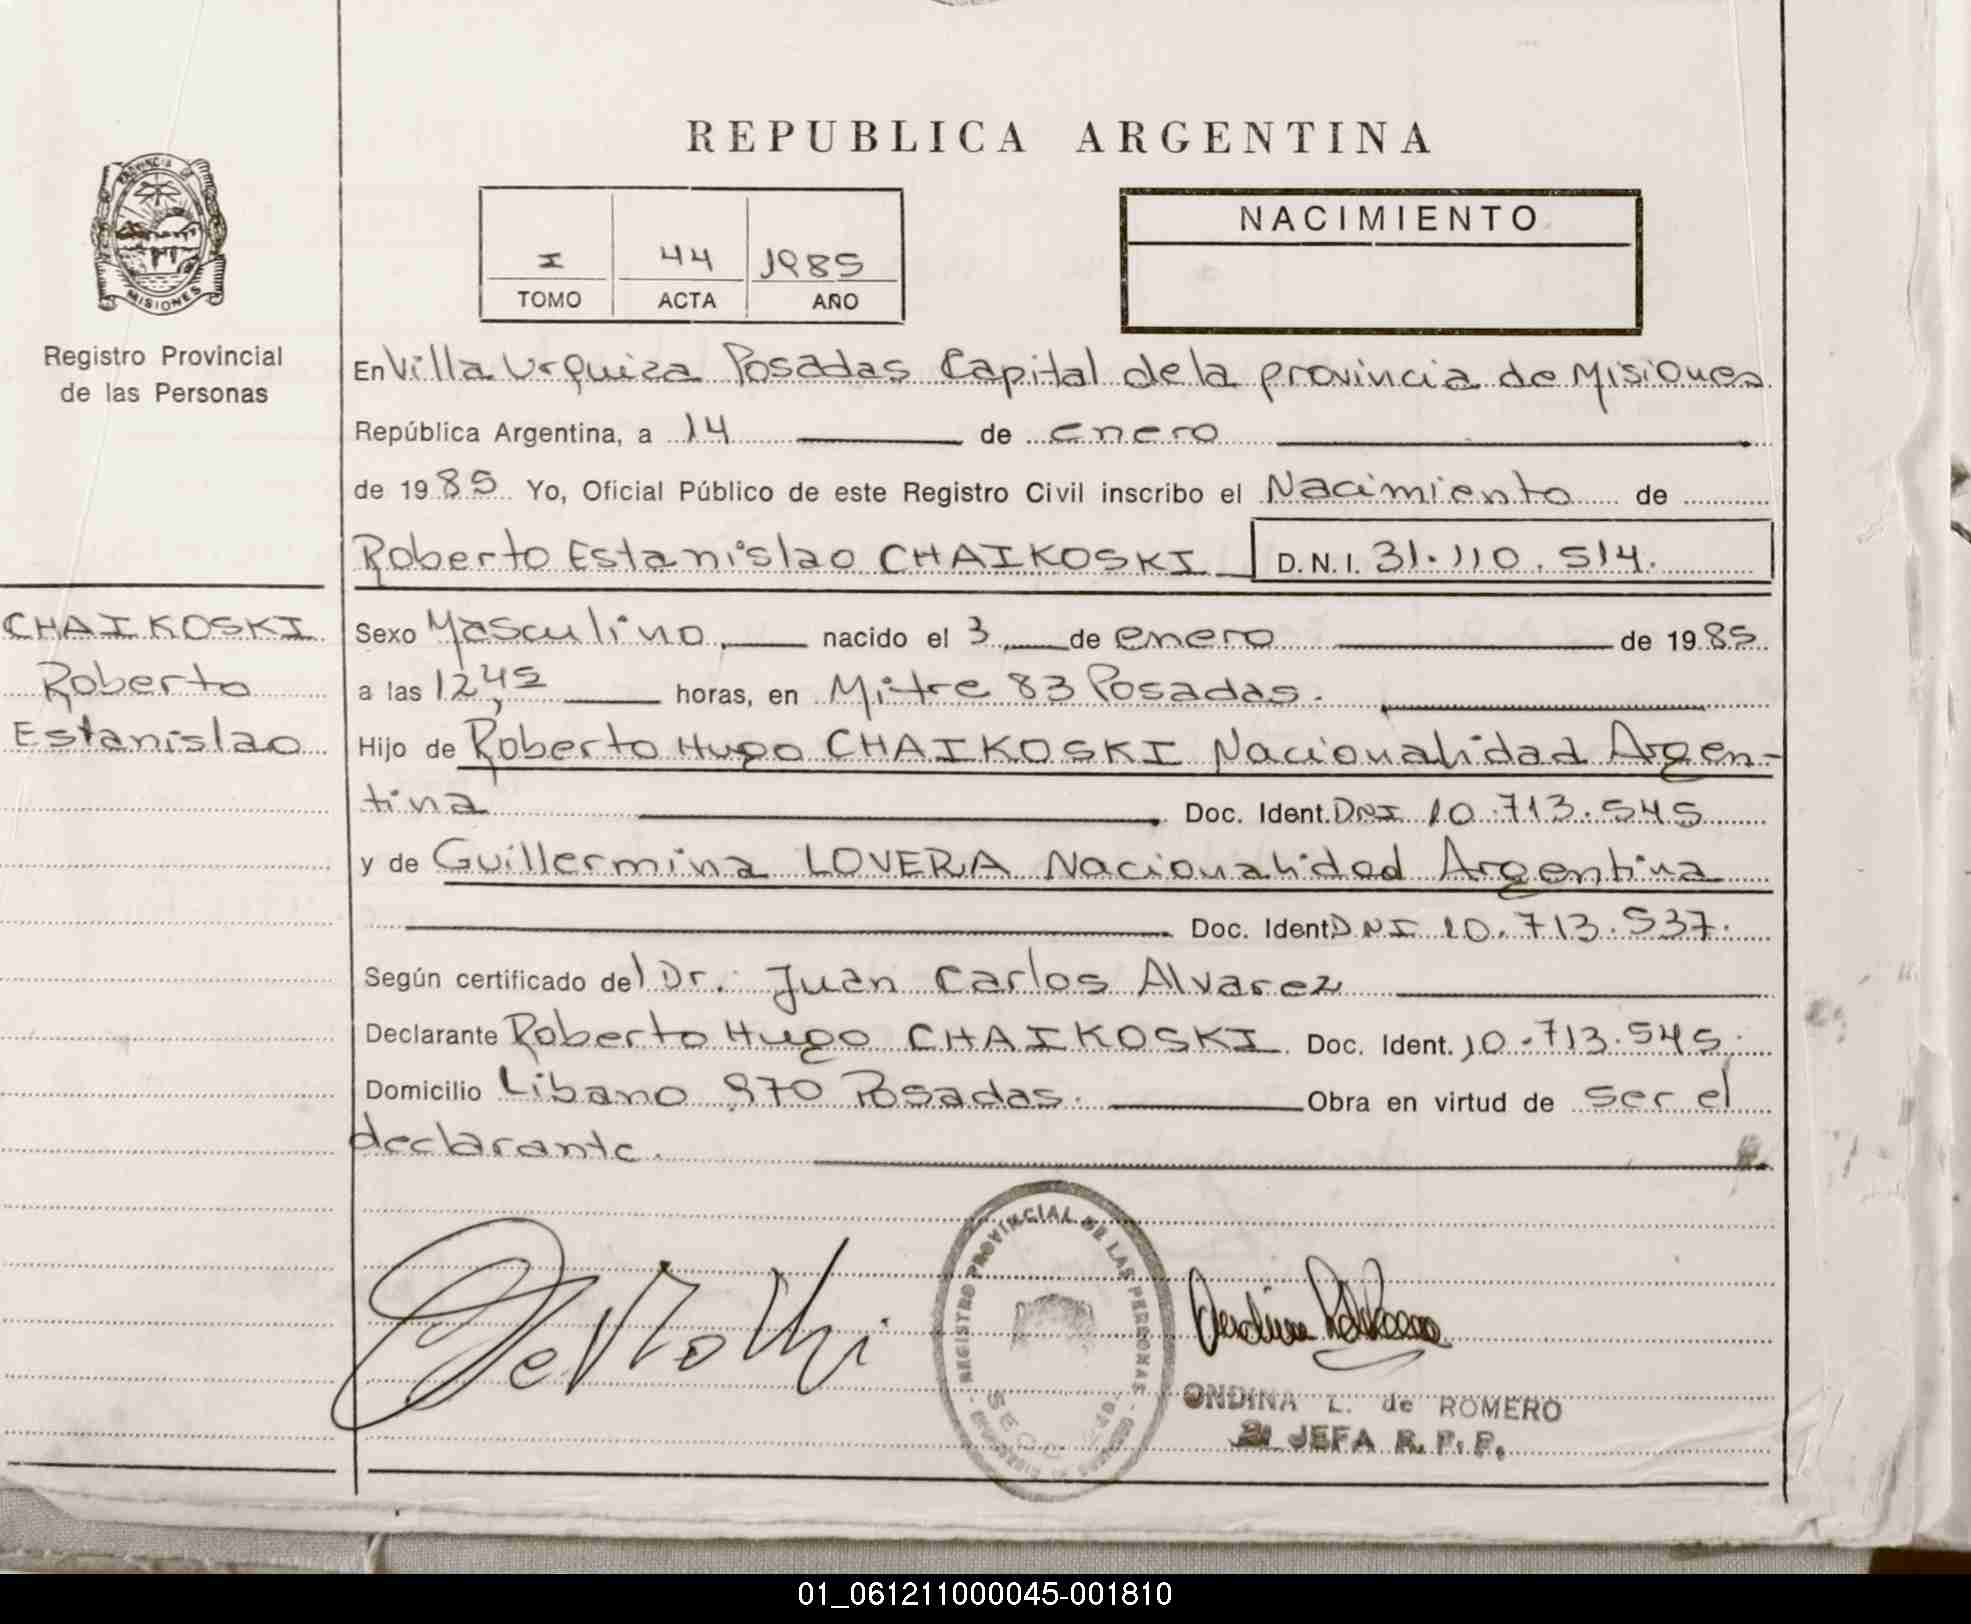 REPUBLICA ARGENTINA
PROVINCIA DE
MISIONES
Registro Provincial
de las Personas
I 44 1985
TOMO ACTA AÑO
NACIMIENTO
En Villa Urquiza Posadas Capital de la provincia de Misiones
República Argentina, a 14 de enero
de 1985 Yo, Oficial Público de este Registro Civil inscribo el Nacimiento de
Roberto Estanislao CHAIKOSKI D.N.I. 31.110.514.
CHAIKOSKI
Roberto
Estanislao
Sexo Masculino nacido el 3 de enero de 1985
a las 12,45 horas, en Mitre 83 Posadas.
Hijo de Roberto Hugo CHAIKOSKI Nacionalidad Argen-
tina Doc. Ident. DNI 10.713.545
y de Guillermina LOVERA Nacionalidad Argentina
Doc. Ident. DNI 10.713.537.
Según certificado del Dr. Juan Carlos Alvarez
Declarante Roberto Hugo CHAIKOSKI Doc. Ident. 10.713.545.
Domicilio Libano 970 Posadas. Obra en virtud de ser el
declarante.
REGISTRO PROVINCIAL DE LAS PERSONAS
ONDINA L. de ROMERO
JEFA R. P. P.
01_061211000045-001810